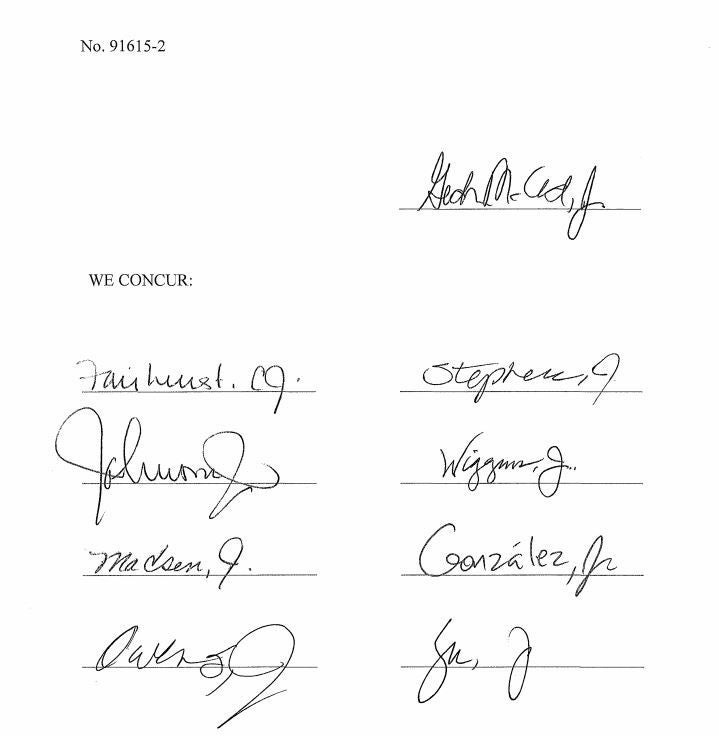 No. 91615-2
Gordon McCloud, J.
WE CONCUR:
Fairhurst, CJ.
Stephens, J
Johnson J
Wiggins, J.
Madsen, J.
González, J.
Owens, J
Yu, J